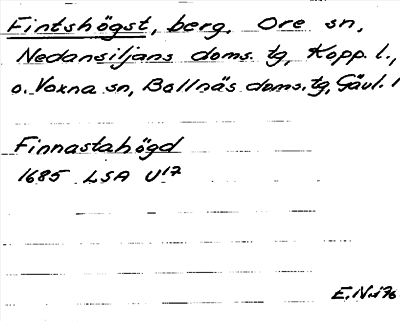 Fintshögst, berg. Ore sn,
Nedansiljans doms. tg, Kopp. l.,
o. Voxna sn, Bollnäs doms. tg, Gävl. l
Finnastahögd
1685 LSA U17
E. N-i 76